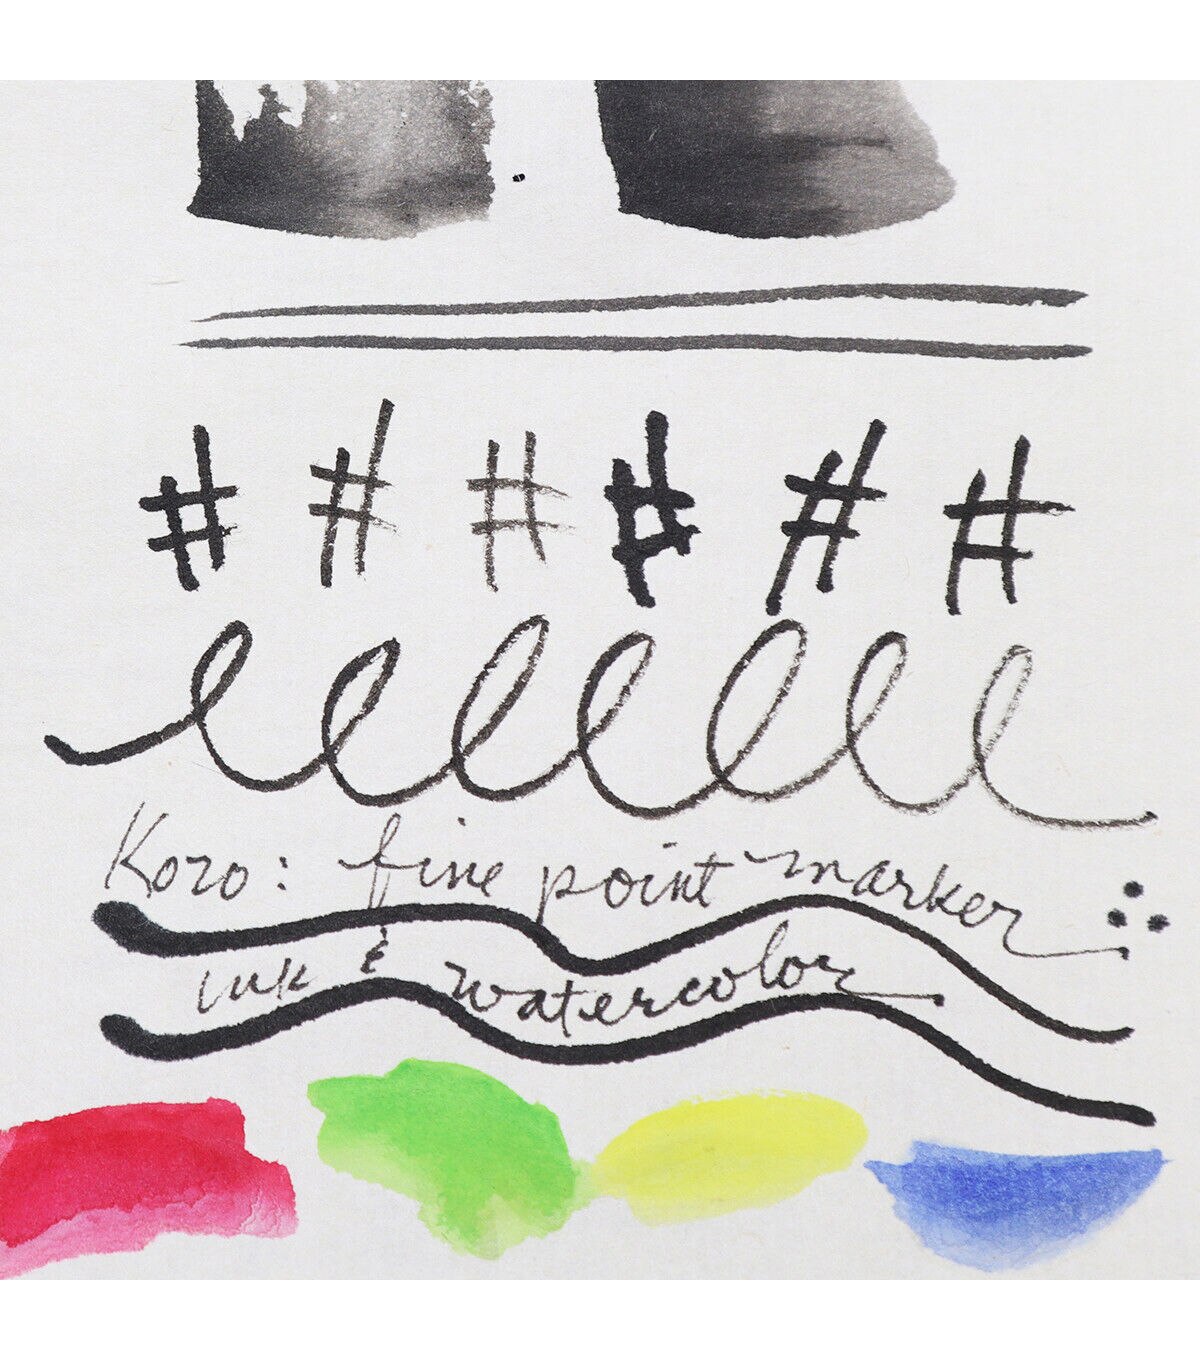 # # # # # #
Kozo: fine point marker
ink & watercolor